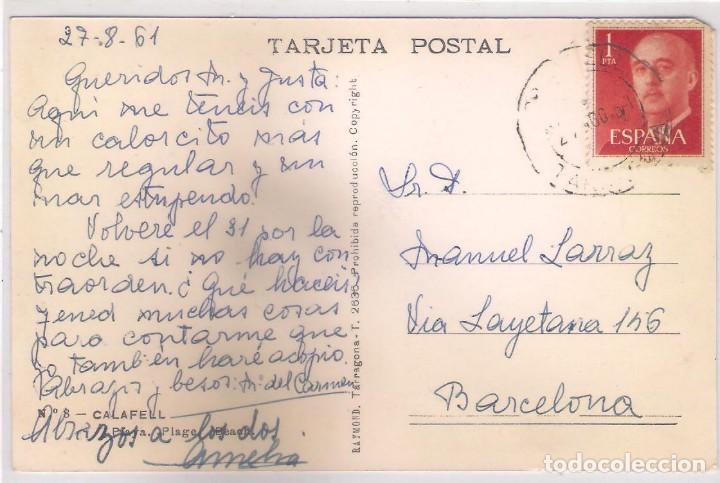 27-8-61
TARJETA POSTAL
Queridos M. y Justa:
Aqui me teneis con
un calorcito más
que regular y un
mar estupendo.
Volveré el 31 por la
noche si no hay con
traorden. ¿Qué haceis?
Tened muchas cosas
para contarme que
yo también haré acopio.
Abrazos y besos: M. del Carmen
Nº 8 — CALAFELL
Playa. Plage. Beach.
Abrazos a los dos
Amelia
RAYMOND. Tarragona.-T. 2636. Prohibida reproducción. Copyright
1
PTA
ESPAÑA
CORREOS
Sr. D.
Manuel Larraz
Via Layetana 156
Barcelona
todocoleccion